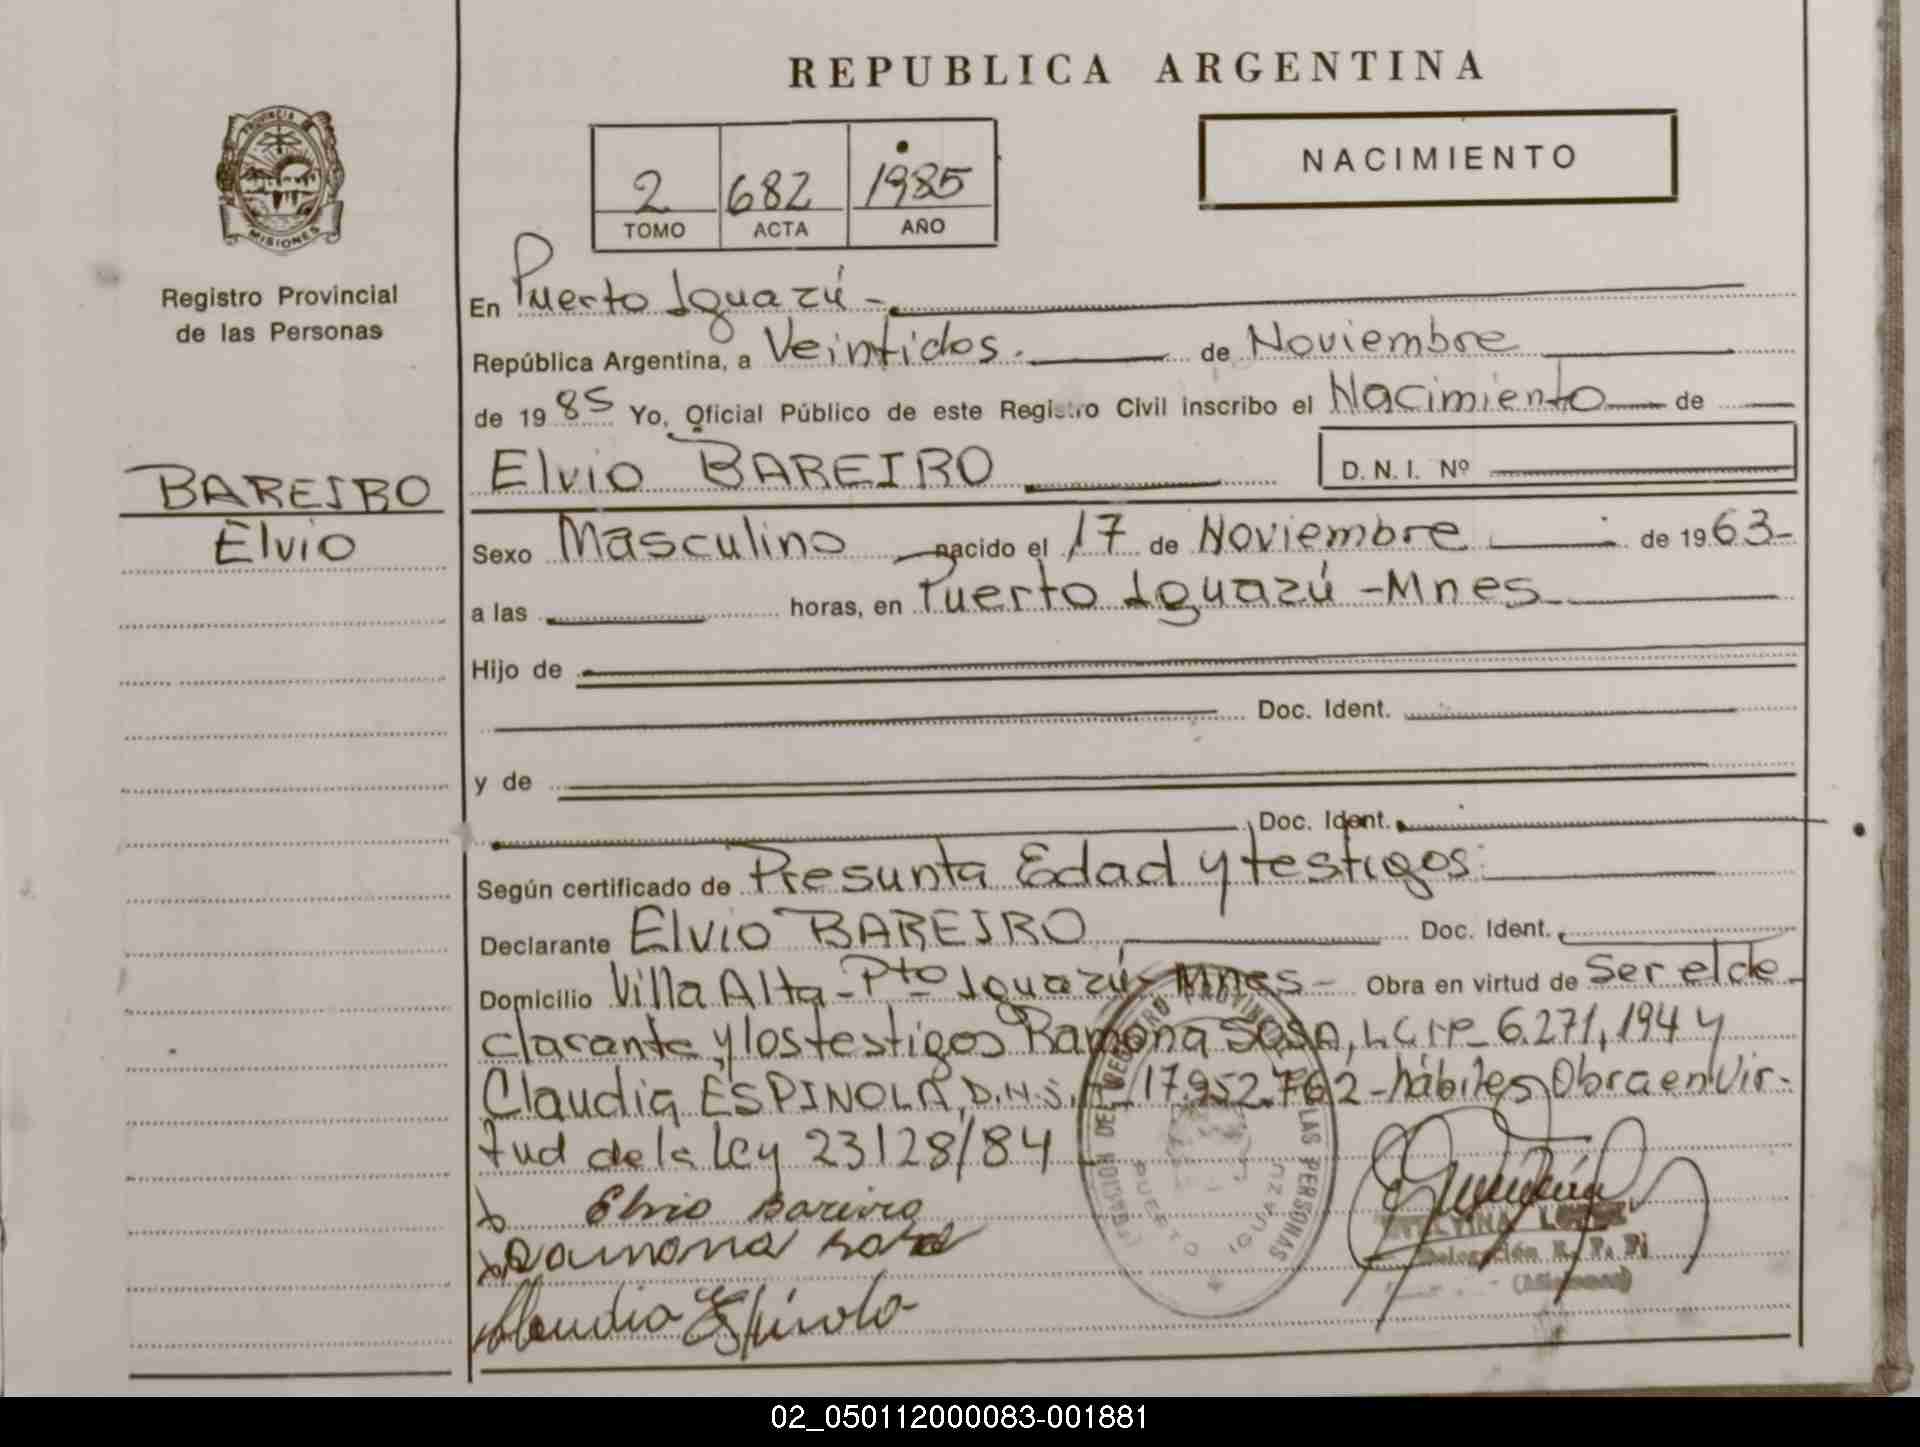 REPUBLICA ARGENTINA
PROVINCIA DE
MISIONES
Registro Provincial
de las Personas
2 682 1985
TOMO ACTA AÑO
NACIMIENTO
En Puerto Iguazú-
República Argentina, a Veintidos. de Noviembre
de 1985 Yo, Oficial Público de este Registro Civil inscribo el Nacimiento de
BAREIRO
Elvio
Elvio BAREIRO D.N.I. Nº
Sexo Masculino nacido el 17 de Noviembre de 1963-
a las horas, en Puerto Iguazú -Mnes
Hijo de
Doc. Ident.
y de
Doc. Ident.
Según certificado de Presunta Edad y testigos
Declarante Elvio BAREIRO Doc. Ident.
Domicilio Villa Alta-Pto Iguazú- Mnes- Obra en virtud de Ser el de-
clarante y los testigos Ramona SOSA, L.C. Nº 6.271,194 y
Claudia ESPINOLA, D.N.I. Nº 17.952.762-hábiles Obra en Vir-
tud de la Ley 23128/84
Elvio Bareiro
Ramona sosa
Claudia Espínola
DEL REGISTRO PROVINCIAL LAS PERSONAS
PUERTO IGUAZU
Delegación R. P. P.
(Misiones)
02_050112000083-001881